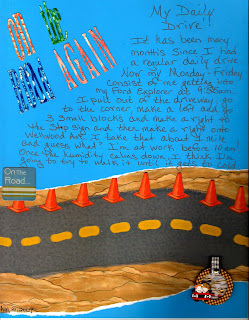 ON THE
ROAD AGAIN
My Daily
Drive
It has been many
months since I had
a regular daily drive.
Now my Monday-Friday
consist of me getting into
my Ford Explorer at 9:55am
I pull out of the driveway, go
to the corner, make a left and go
3 small blocks and make a right at
the stop sign and then make a right onto
Wellwood Ave. I take that about 1 mile
and guess what? I'm at work before 10am.
Once the humidity calms down, I think I'm
going to try to walk it until it gets to cold.
On the
Road...